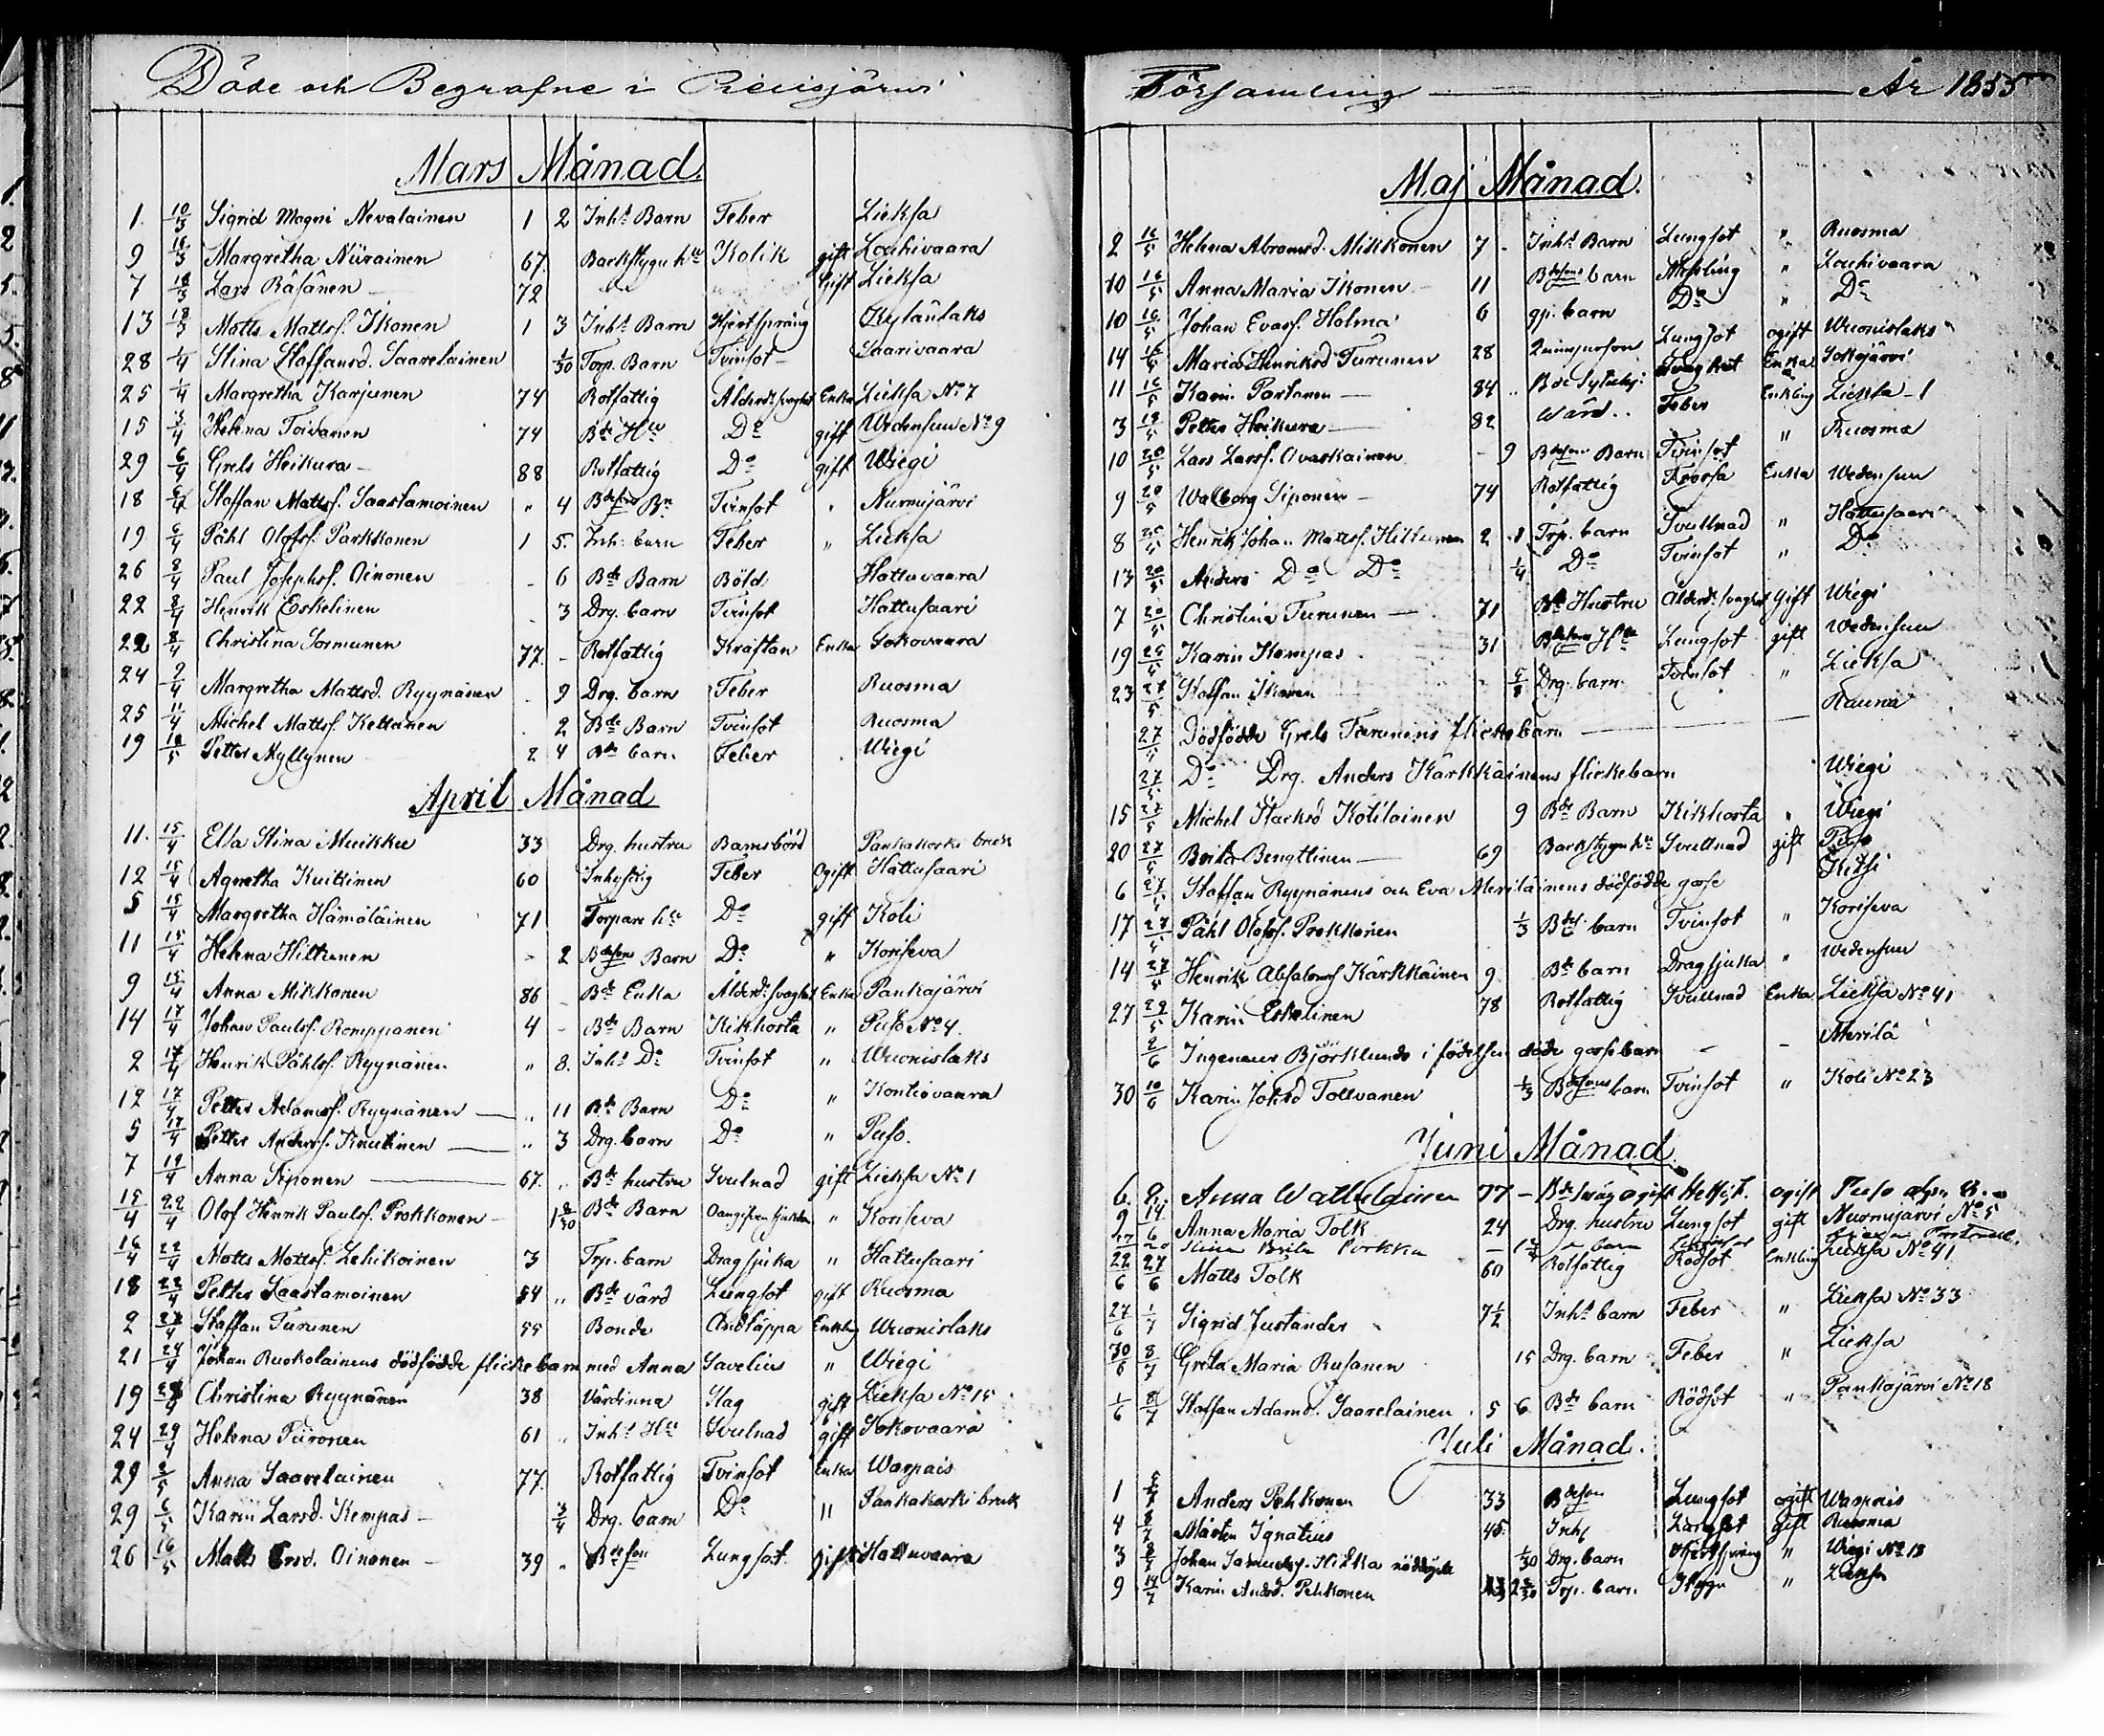 Döde och Begrafne i Pielisjärvi
Mars Månad.
1. 10/3 Sigrid Magni Nevalainen 1 2 Inhs Barn Feber Lieksa
9 18/3 Margretha Niirainen 67. Backstygu hu Kolik gift Louhivaara
7 18/3 Lars Räsänen 72 Gift Lieksa
13 18/3 Matts Mattsf. Ikonen 1 3 Inhs Barn Hjertsprång Kylänlaks
28 1/4 Stina Staffansd. Saarelainen 1/30 Torp. Barn Tvinsot Saarivaara
25 1/4 Margretha Karjunen 74 Rotfattig Ålderds svaghet Enka Lieksa No 7
15 3/4 Helena Toivanen 74 Bde Hu Do gift Wedensuu No 9
29 6/4 Grels Heikura 88 Rotfattig Do gift Wiegi
18 6/4 Staffan Mattsf. Saastamoinen " 4 Bdesons Bn Tvinsot Nurmijärvi
19 6/4 Påhl Olofsf. Parkkonen 1 5. Inh: barn Feber " Lieksa
26 8/4 Paul Josephsf. Oinonen - 6 Bde Barn Böld Hattuvaara
22 8/4 Henrik Eskelinen 3 Drg. barn Tvinsot Hattusaari
22 8/4 Christina Sormunen 77. - Rotfattig Kräftan Enka Sokovaara
24 9/4 Margretha Mattsd. Ryynänen . 9 Drg. barn Feber Ruosma
25 11/4 Michel Mattsf. Kettunen . 2 Bde Barn Tvinsot Ruosma
19 10/5 Petter Myllynen 2 4 Bde barn Feber . Wiegi
April Månad
11. 15/4 Ella Stina Muikku 33 Drg. hustru Barnsbörd Pankakoski bruk
12 15/4 Agnetha Kuittinen 60 Inhysing Feber Ogift Hattusaari
5 15/4 Margretha Hämäläinen 71 Torpare hu Do gift Koli
11 15/4 Helena Hiltunen - 2 Bdesons Barn Do " Koriseva
9 15/4 Anna Mikkonen 86 - Bde Enka Ålderds svaghet Enka Pankajärvi
14 17/4 Johan Paulsf. Romppanen 4 - Bde Barn Kikhosta " Puso No 4.
2 17/4 Henrik Påhlsf. Ryynänen " 8. Inhs Do Tvinsot " Wuonislaks
12 17/4 Petter Adamsf. Ryynänen .. 11 Bde Barn Do " Kontiovaara
5 17/4 Petter Andersf. Knutinen .. 3 Drg. barn Do " Puso.
7 19/4 Anna Siponen 67. .. Bde hustru Svulnad gift Lieksa No 1
15/4 22/4 Olof Henrik Paulsf. Prokkonen 1 8/30 Bde Barn Oangifven sjukdom " Koriseva
16/4 22/4 Matts Mattsf. Lehikoinen 3 Trp. barn Dragsjuka " Hattusaari
18 22/4 Petter Saastamoinen 54 .. Bde värd Lungsot gift Ruosma
2 27/4 Staffan Turunen 55 Bonde Andtäppa Enkling Wuonislaks
21 24/4 Johan Ruokolainens dödfödde flickebarn med Anna Savelius " Wiegi
19 28/4 Christina Ryynänen 38 Värdinna Slag gift Lieksa No 15
24 29/4 Helena Piironen 61 .. Inhs Hu Svulnad gift Sokovaara
29 6/5 Anna Saarelainen 77. Rotfattig Tvinsot Enka Warpais
29 6/5 Karin Larsd. Kempas 3/4 Drg. barn Do " Pankakoski bruk
26 16/5 Matts Oinonen 39 .. Bdeson Lungsot. gift Hattuvaara
Församling År 1855
Maj Månad.
2 16/5 Helena Abramsd. Mikkonen 7 - Inhs Barn Lungsot " Ruosma
10 16/5 Anna Maria Ikonen 11 Bdesons barn Messling " Louhivaara
10 16/5 Johan Evasf. Holma 6 gp. barn Do " Do
14 16/5 Maria Henriksd Turunen 28 Qvinsperson Lungsot ogift Wuonislaks
11 16/5 Karin Partanen 84 Svaghet Enka Sokojärvi
3 19/5 Petter Heikura 82 Wärd Feber Enkling Lieksa 1
10 20/5 Lars Larsf. Ovaskainen - 9 Bdesons Barn Tvinsot " Ruosma
9 20/5 Walborg Siponen 74 Rotfattig Frossa Enka Wedensuu
8 20/5 Henrik Johan Mattsf. Hiltunen 2 1 Trp. barn Svullnad " Hattusaari
13 20/5 Anders Do Do 1/4 Do Tvinsot " Do
7 20/5 Christina Turunen 71 Bde Hustru Ålderds svaghet Gift Wiegi
19 25/5 Karin Kempas 31 Bdesons Hu Lungsot gift Wedensuu
23 27/5 Staffan Ikonen - Drg. barn Tvinsot " Lieksa
27/5 Dödfödde Grels Turunens flickebarn Rauna
27/5 Do Drg. Anders Kärkkäinens flickebarn Wiegi
15 27/5 Michel Starksd Kotilainen 9 Bde Barn Kikhosta " Wiegi
20 27/5 Brita Bengttinen 69 Backstygu hu Svullnad gift Puso
6 27/5 Staffan Ryynänens och Eva Meriläinens dödfödde gosse Kitsi
17 27/5 Påhl Olofsf. Prokkonen 1/3 Bdes barn Tvinsot " Koriseva
14 27/5 Henrik Absalomsf Kärkkäinen 9 Bde barn Dragsjuka " Wedensuu
27 29/5 Karin Eskelinen 78 Rotfattig Svullnad Enka Lieksa No 41
2/6 Ingenieur Björklunds i födelsen döde gossebarn Merilä
30 10/6 Karin Johsd Tollvanen 1/3 Bdesons barn Tvinsot " Koli No 23
Juni Månad.
6. Anna Wattulainen 77 - Hetsjk. ogift Puso
9 14/6 Anna Maria Tolk 24 Drg. hustru Lungsot gift Nurmijärvi No 5
Stina Brita Porkka - barn
22/6 27/6 Matts Tolk 60 Rotfattig Rödsot Enkling Lieksa No 41
27/6 1/7 Sigrid Justander 7 1/2 Inhs barn Feber " Lieksa No 33
30/6 8/7 Greta Maria Rusanen 15 Drg. barn Feber " Lieksa
1/6 8/7 Staffan Adams. Saarelainen 5 6 Bde barn Rödsot " Pankajärvi No 18
Juli Månad.
1 Anders Pehkonen 33 Bdeson Lungsot ogift Warpais
4 Mårten Ignatius 45 Inh Lungsot gift Ruosma
3 8/7 Johan Hilka nöddöpt 1/30 Drg. barn Hjertsprång " Wiegi No 13
9 14/7 Karin Andsd. Pehkonen Trp. barn Stygn " Lieksa